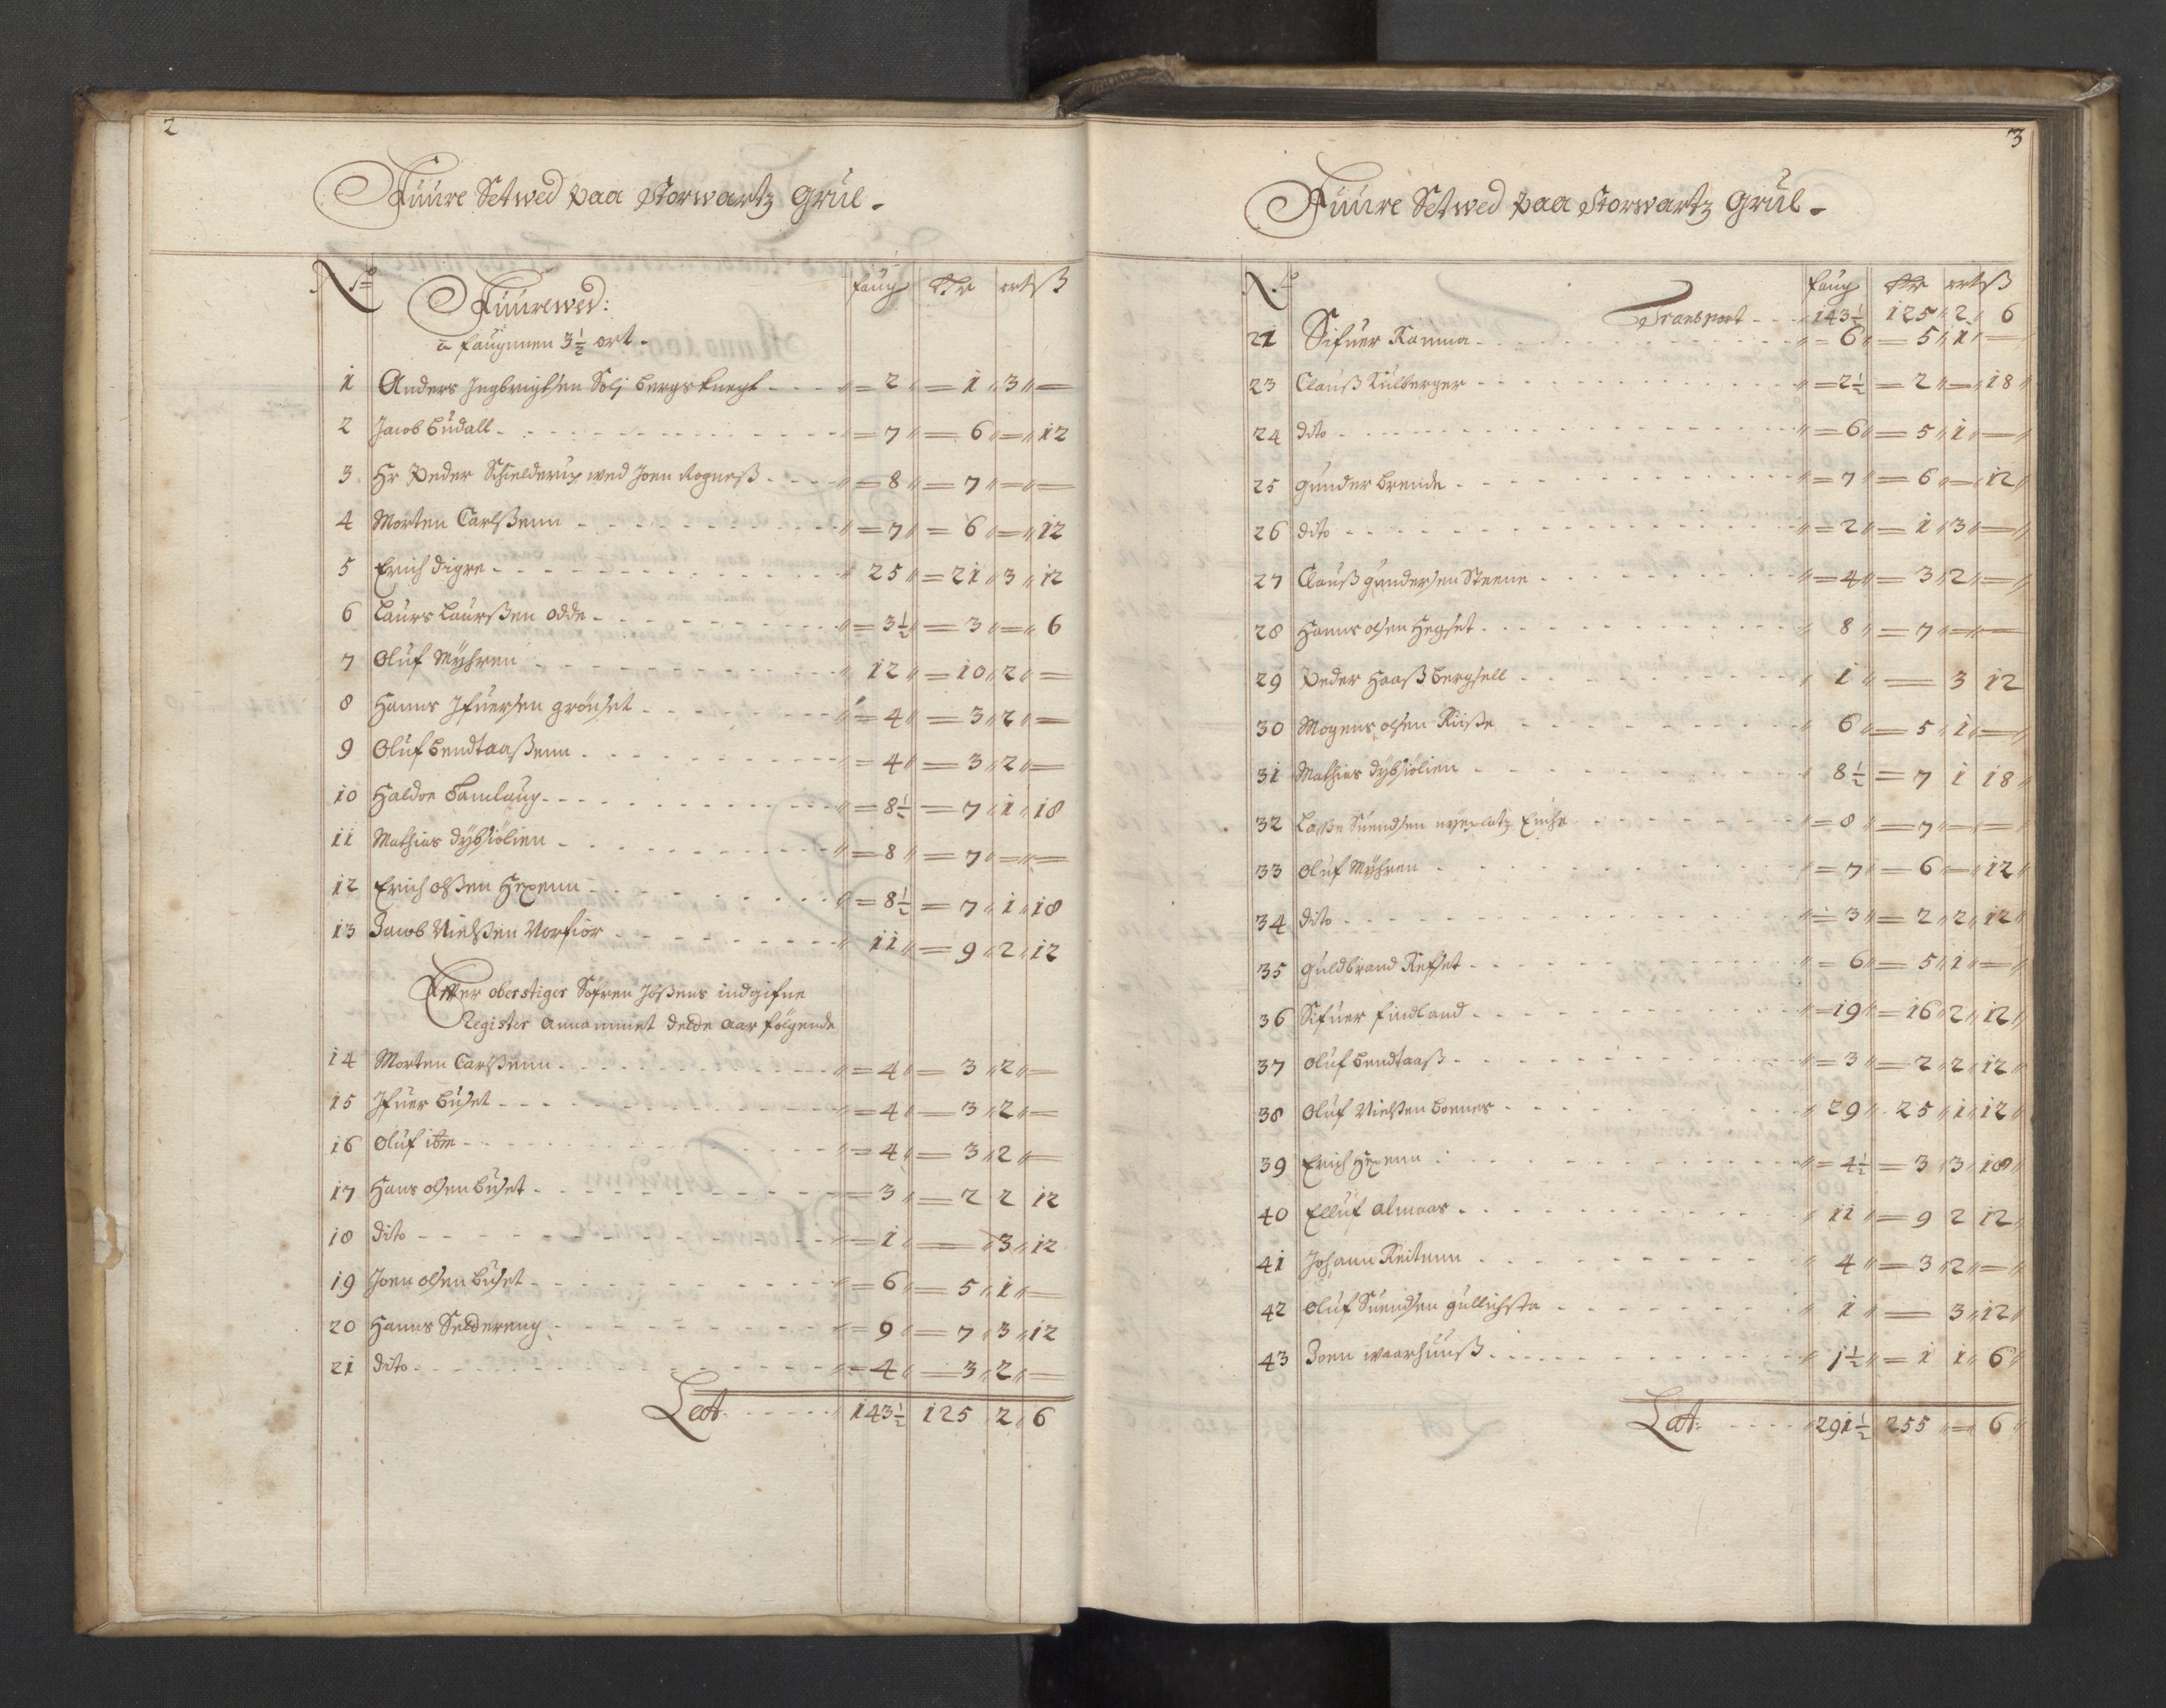 2
Fuure Setwed paa Storwartz Grul.
No faug Rdr ort ß
Fuurewed:
a faugnnen 3½ ort.
1 Anders Ingbrigtsen Solj bergsknegt - - - = 2 = 1 3 =
2 Jacob Budall - - - = 7 = 6 = 12
3 Hr Peder Schielderup wed Joen Rogneß - - - = 8 = 7 = =
4 Morten Carlßenn - - - = 7 = 6 = 12
5 Erich digre - - - 25 = 21 3 12
6 Laurs Laurßen Odde - - - = 3½ = 3 = 6
7 Oluf Mÿhren - - - 12 = 10 2 =
8 Hanns Ifuersen grönset - - - = 4 = 3 2 =
9 Oluf bendtaaßenn - - - = 4 = 3 2 =
10 Haldoe Bamlaug - - - = 8½ = 7 1 18
11 Mathias dÿbsiölien - - - = 8 = 7 = =
12 Erich olßen Hexenn - - - = 8½ = 7 1 18
13 Jacob Nielßen Norfiör - - - 11 = 9 2 12
Efter oberstiger Sofren Ibßens indgifne
Register annammet dette aar fölgende
14 Morten Carlßenn - - - = 4 = 3 2 =
15 Ifuer buset - - - = 4 = 3 2 =
16 Oluf ibm - - - = 4 = 3 2 =
17 Hans olsen buset - - - = 3 = 2 2 12
18 dito - - - = 1 = 3 12
19 Joen olsen buset - - - = 6 = 5 1 =
20 Hanns Seldereng - - - = 9 = 7 3 12
21 dito - - - = 4 = 3 2 =
Lat - - - 143½ 125 2 6
3
Fuure Setwed paa Storwartz Grul.
No faug Rdr ort ß
Transport - - - 143½ 125 2 6
21 Sifuer Ramna - - - = 6 = 5 1 =
23 Clauß Kulberger - - - = 2½ = 2 = 18
24 dito - - - = 6 = 5 1 =
25 gunder brende - - - = 7 = 6 = 12
26 dito - - - = 2 = 1 3 =
27 Clauß gundersen Steene - - - = 4 = 3 2 =
28 Hanns olsen Hegset - - - 8 = 7 = =
29 Peder Haaß bergsell - - - 1 = 3 12
30 Mogens olsen Riiße - - - 6 = 5 1 =
31 Mathias dÿbsiölien - - - 8½ = 7 1 18
32 Laße Suendsen - - - = 8 = 7 = =
33 Oluf Mÿhren - - - = 7 = 6 = 12
34 dito - - - = 3 = 2 2 12
35 guldbrand Refset - - - = 6 = 5 1 =
36 Sifuer findland - - - = 19 = 16 2 12
37 Oluf bendtaaß - - - = 3 = 2 2 12
38 Oluf Nielßen boenes - - - 29 25 1 12
39 Erich Hexenn - - - = 4½ = 3 3 18
40 Elluf almaas - - - 11 = 9 2 12
41 Johann Reitenn - - - 4 = 3 2 =
42 Oluf Suendsen gullichsta - - - 1 = 3 12
43 Joen waarhuuß - - - 1½ = 1 1 6
Lat: - - - 291½ 255 = 6